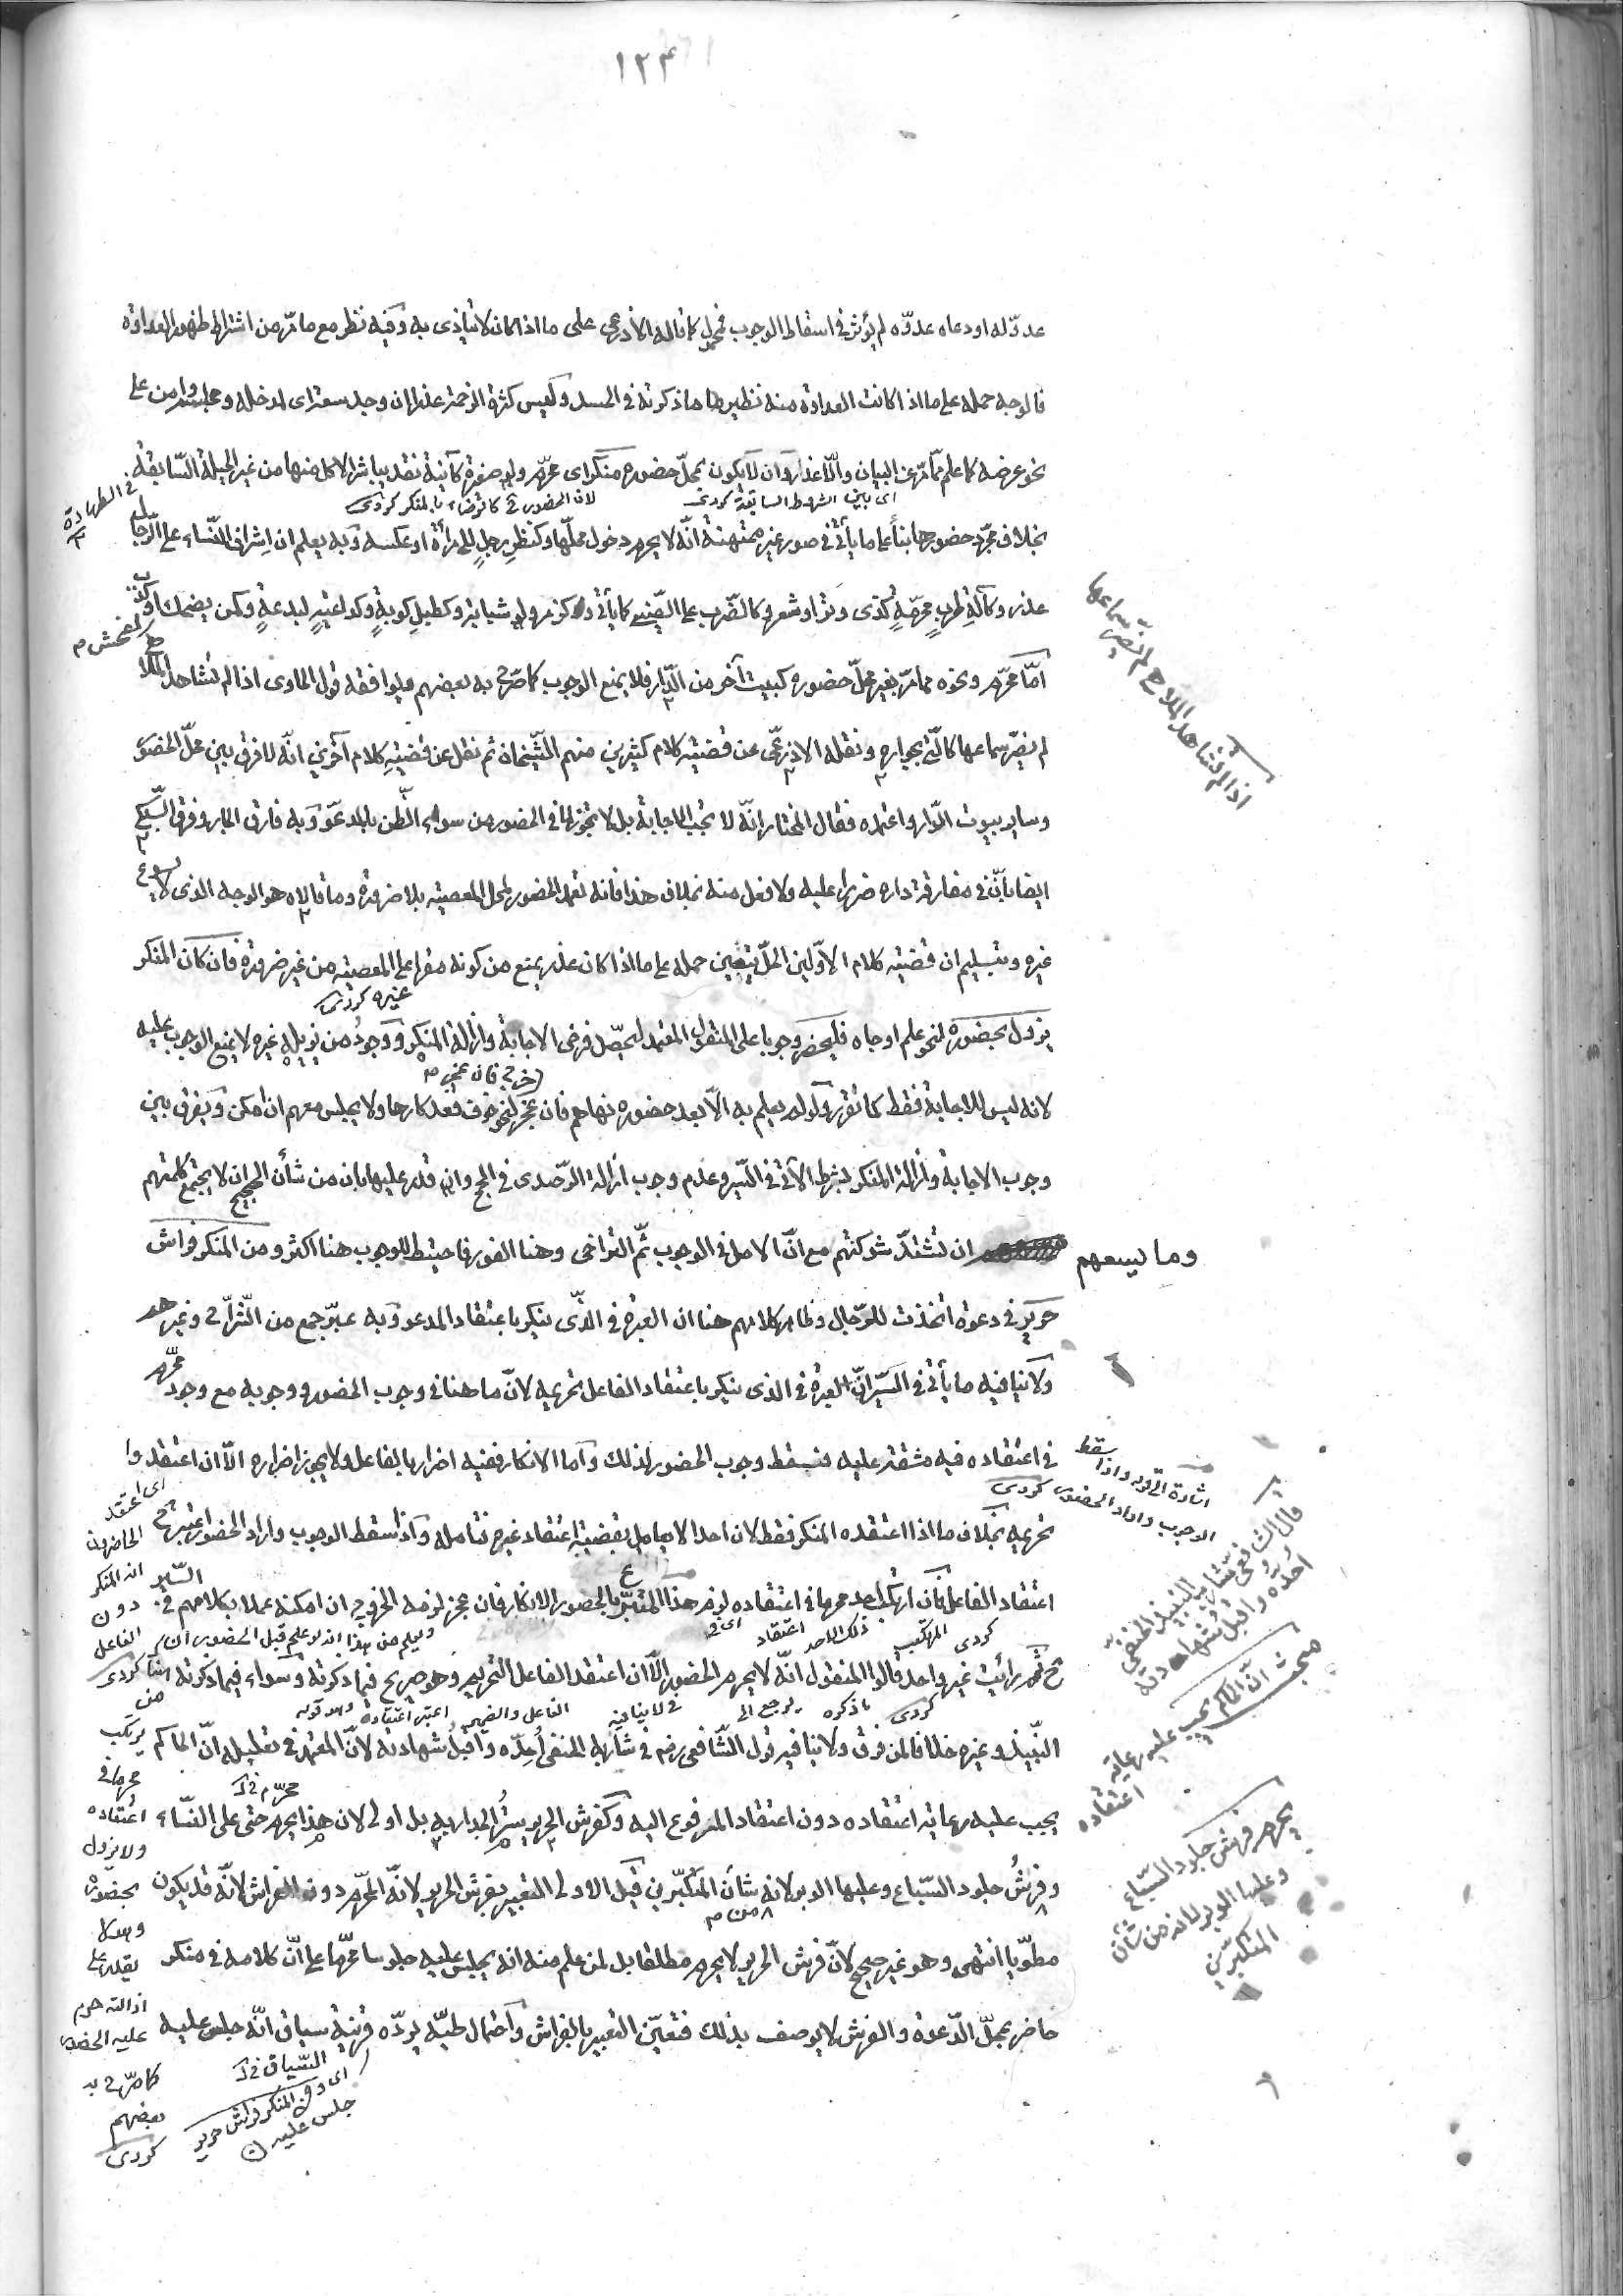 ١٢٣
عدوّ له او دعاه عدوّه لم يؤثر في اسقاط الوجوب فمحمول كما قاله الاذرعي على ما اذا كان لا يتأذى به وفيه نظر مع ما مرّ من اشتراط ظهور العداوة
فالوجه حمله على ما اذا كانت العداوة منه نظير ما ذكرته في الحسد وليس كثرة الزحمة عذرا ان وجد سعة اى لمدخله ومجلسه وامن على
نحو عرضه كما علم ممّا مرّ عن البيان والّا عذر وان لا يكون بمحلّ حضوره منكر اى محرّم ولو صغيرة كآنية نقد يباشر الاكل منها من غير الحيلة السّابقة
فى الطهارة
اى باقى الشروط السابقة كردى
لان الحضور كردى
بخلاف مجرّد حضورها بناءً على ما يأتى فى صور غير ممتهنة انّه لا يحرم دخول محلّها وكنظر رجلٍ للمرأة او عكسه وبه يعلم ان اشراف النّساء على الرّجال
عذر وكآلةِ طربٍ محرّمةٍ كذى وتر او شعر وكالضّرب على الصّينى كما يأتى وكزمر ولو شبابة وكطبلِ كوبةٍ وكداعيةٍ لبدعةٍ وكمن يضحك بفحش او كذب
امّا محرّم ونحوه ممّا مرّ بغير محلّ حضوره كبيت آخر من الدّار فلا يمنع الوجوب كما صرّح به بعضهم ويوافقه قول الحاوى اذا لم تشاهد الملاهى
اذا لم تشاهد الملاهى لم يضرّ سماعها
لم يضرّ سماعها كالّتى بجواره ونقله الاذرعّى عن قضيّة كلام كثيرين منهم الشّيخان ثم نقل عن قضيّة كلام آخرين انّه لا فرق بين محلّ الحضور
وساير بيوت الدّار واعتمده فقال المختار انّه لا تجب الاجابة بل لا تجوز لما فى الحضور من سوء الظّن بالمدعوّ وبه فارق الجار وفرق السّبكى
ايضا بانّ فى مفارقة داره ضررا عليه ولا فعل منه بخلاف هذا فانه تعمد الحضور لمحل المعصية بلا ضرورة وما قالاه هو الوجه الذى لا يسوغ
غيره وبتسليم ان قضيّة كلام الاوّلين الحلّ يتعين حمله على ما اذا كان عذر يمنع من كونه مقرا على المعصية من غير ضرورة فان كان المنكر
يزول بحضوره لنحو علم او جاه فليحضر وجوبا على المنقول المعتمد ليحصّل فرضى الاجابة وازالة المنكر ووجود من يزيله غيره لا يمنع الوجوب عليه
غيره كردى
لانه ليس للاجابة فقط كما تقرّر ولو لم يعلم به الّا بعد حضوره نهاهم فان عجز لنحو خوف قعد كارها ولا يجلس معهم ان امكن ويفرق بين
وجوب الاجابة وازالة المنكر بشرطه الآتى فى السّير وعدم وجوب ازالة الرّصدى فى الحج وان قدر عليها بان من شأن الحجيج ان لا يجتمع كلمتهم
وما يسعهم ان تشتدّ شوكتهم مع انّ الاصل فى الوجوب ثَمّ التراخى وهنا الفور فاحتيط للوجوب هنا اكثر ومن المنكر فراش
حرير فى دعوة اتخذت للرّجال وظاهر كلامهم هنا ان العبرة فى الّذى ينكر باعتقاد المدعو وبه عبّر جمع من الشّرّاح وغيرهم
ولا ينافيه ما يأتى فى السّير انّ العبرة فى الذى ينكر باعتقاد الفاعل تحريمه لانّ ما هنا فى وجوب الحضور ووجوبه مع وجود محرّم
فى اعتقاده فيه مشقة عليه فسقط وجوب الحضور لذلك وامّا الانكار ففيه اضرار بالفاعل ولا يجوز اضراره الّا ان اعتقد
اشارة الى قوله واذا سقط الوجوب واراد الحضور كردى
تحريمه بخلاف ما اذا اعتقده المنكر فقط لان احدا لا يعامل بقضيّة اعتقاد غيره فتأمله واذا سقط الوجوب واراد الحضور اعتبر ح
اعتقاد الفاعل فان ارتكب احد محرما فى اعتقاده لزم هذا المتبرّع بالحضور الانكار فان عجز لزمه الخروج ان امكنه عملا بكلامهم فى السّير
ثمّ رأيت غير واحد قالوا المنقول انّه لا يحرم الحضور الّا ان اعتقد الفاعل التحريم وهو صريح فيما ذكرته وسواء فيما ذكرته
النّبيذ وغيره خلافا لمن فرق ولا ينافيه قول الشّافعى رضه فى شارب الحنفى أحدّه واقبل شهادته لانّ المعتمد فى تعليله انّ الحاكم
يجب عليه رعاية اعتقاده دون اعتقاد المرفوع اليه وكفرش الحرير سترُ الجدار به بل اولى لان هذا يحرم حتى على النّساء
وفرشُ جلود السّباع وعليها الوبر لانه شأن المتكبّرين قيل الاولى التعبير بفرش الحرير لانّه المحرّم دون الفراش لانّه قد يكون
مطويّا انتهى وهو غير صحيح لانّ فرش الحرير لا يحرم مطلقا بل لمن علم منه انه يجلس عليه جلوسا محرّما على انّ كلامه فى منكر
حاضر بمحلّ الدّعوة والفرش لا يوصف بذلك فتعيّن التعبير بالفراش واحتمال طيّه يردّه قرينة سياق انّه جلس عليه
قال الشافعى شارب النبيذ الحنفىّ احدّه واقبل شهادته
مبحث انّ الحاكم يجب عليه رعاية اعتقاده
يحرم فرش جلود السّباع وعليها الوبر لانه من شأن المتكبّرين
اى اعتقد
الحاضرون
انه المنكر
دون
الفاعل
كردى
يرتكب
محرما فى
اعتقاده
ولا يزول
بحضوره
يقدر على
ازالته حرم
عليه الحضور
كما صرّح به
بعضهم
كردى
اى ومن المنكر فراش حرير
جلس عليه